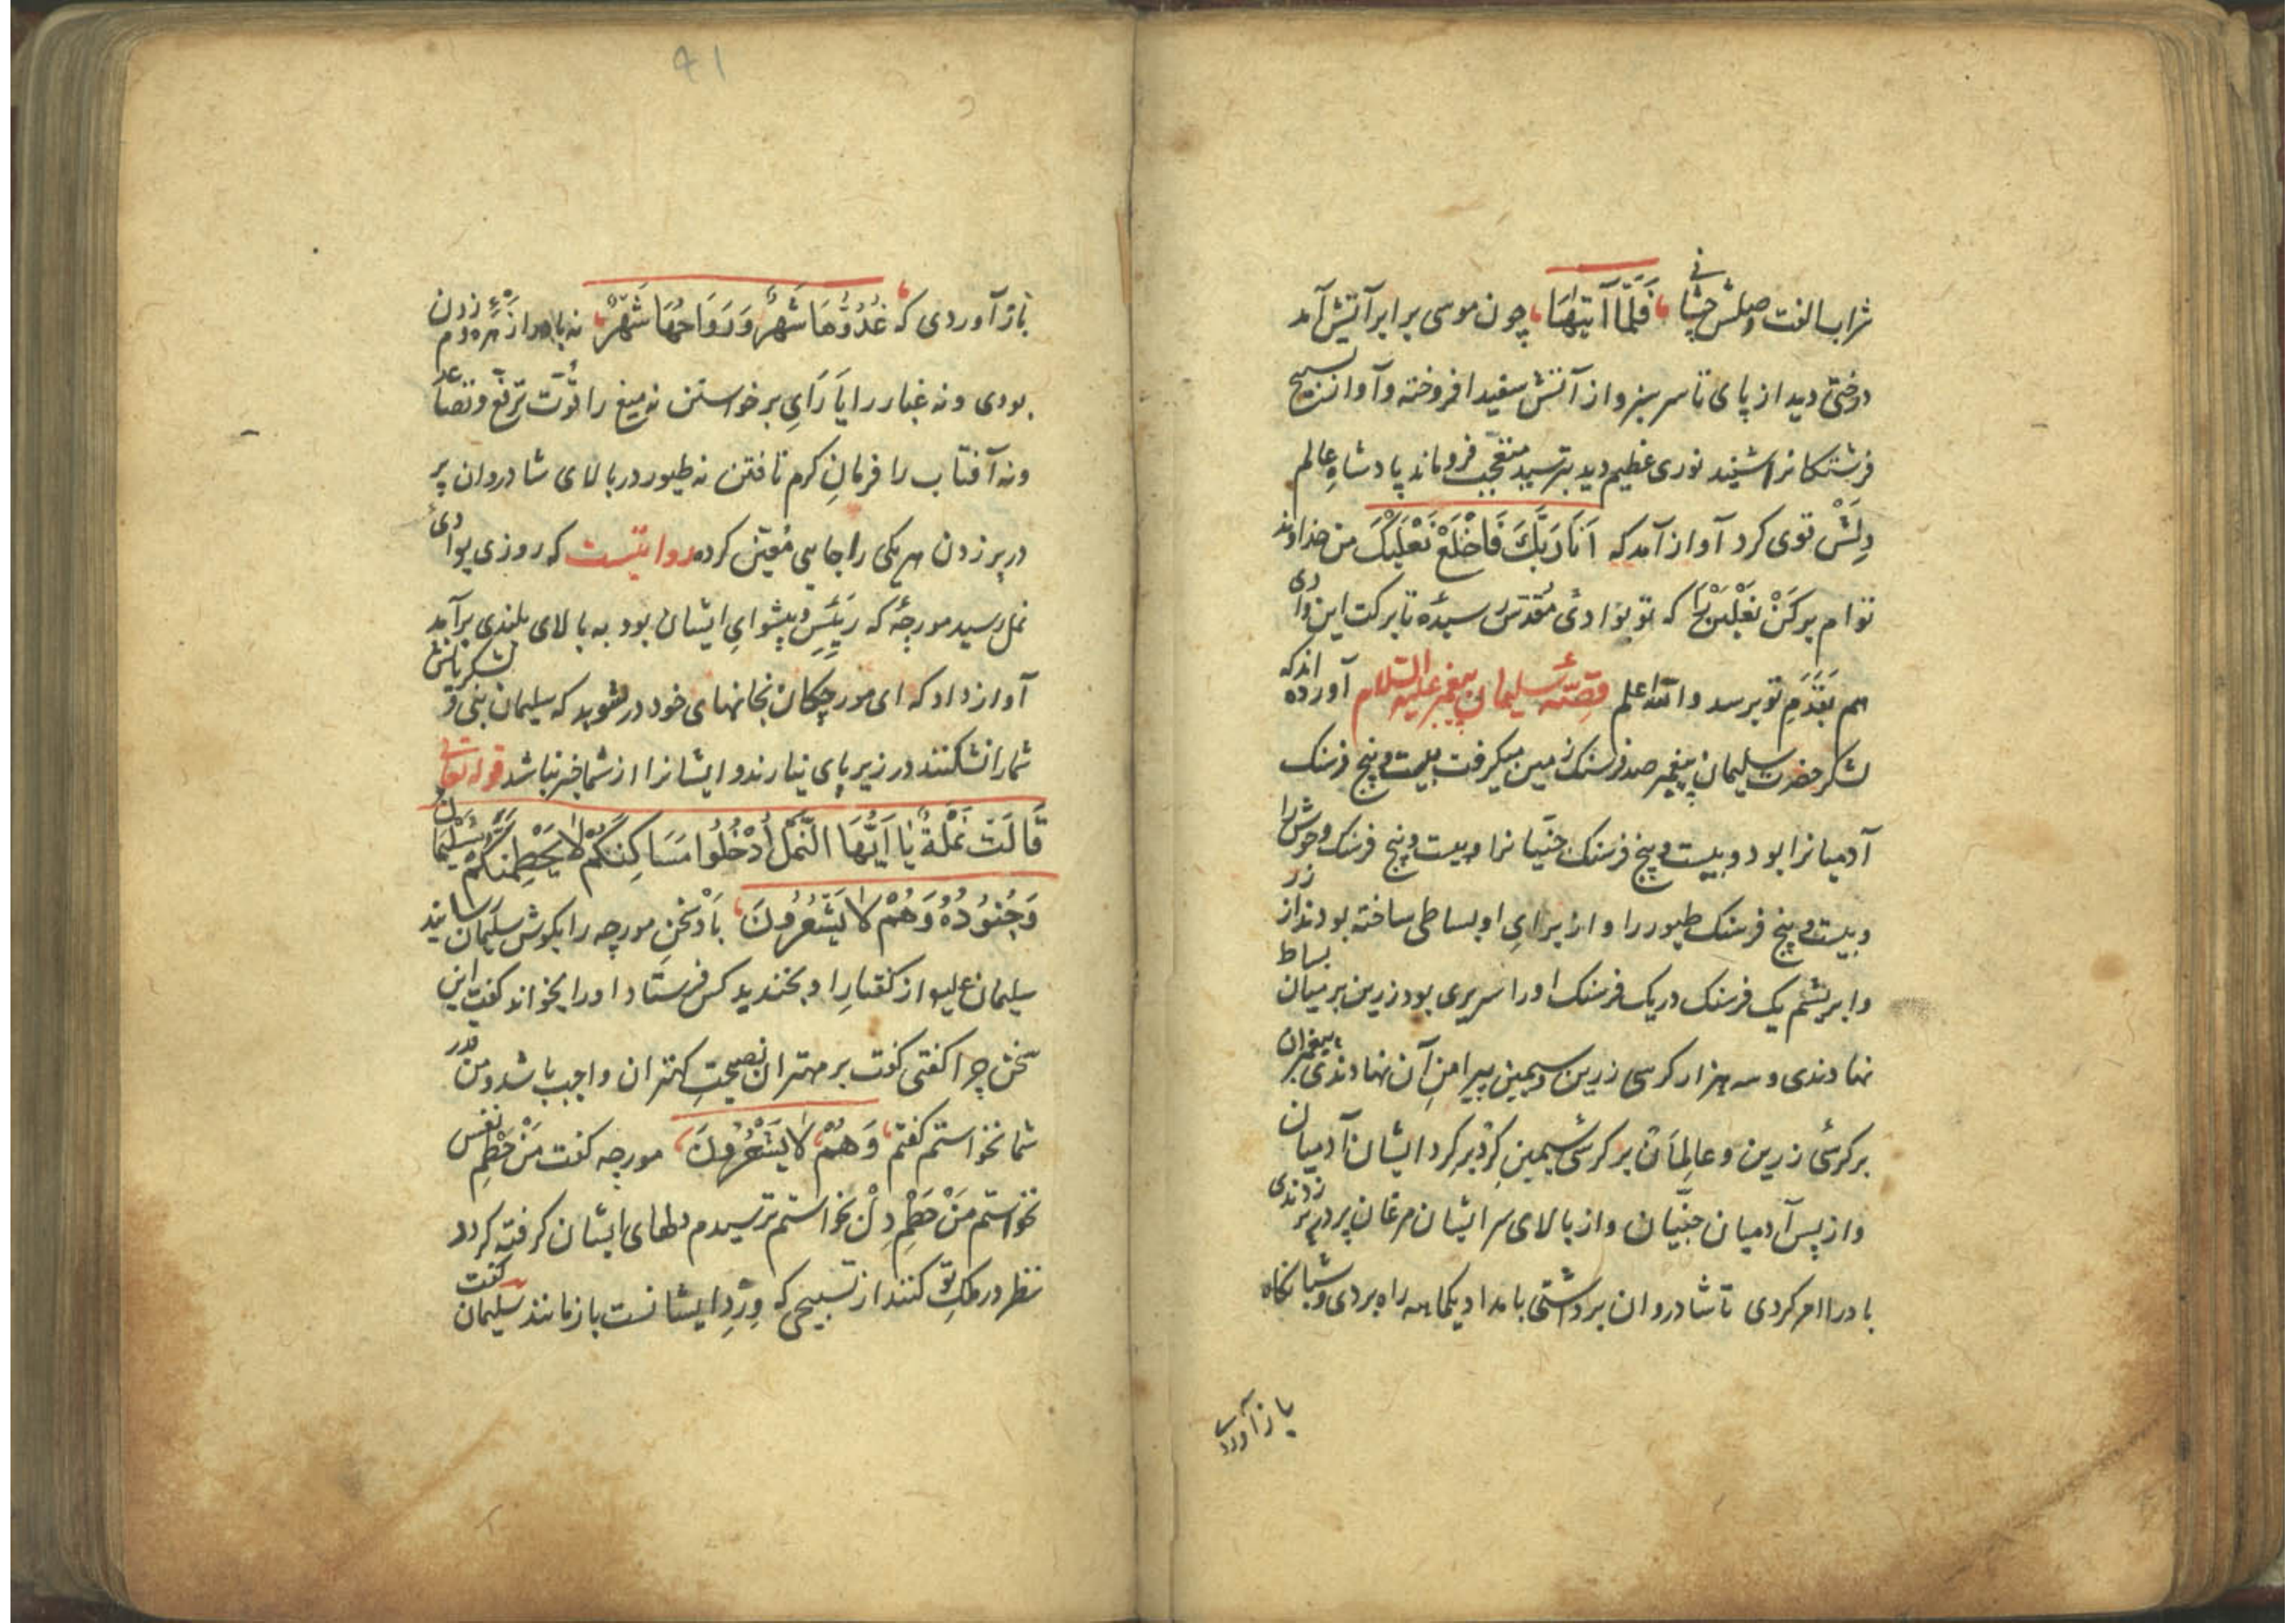 شراب الفت وصلش چشانی فَلَمَّا آتَیٰهَا چون موسی برابر آتش آمد
درختی دید از پای تا سر سبز و از آتش سفید افروخته و آواز تسبیح
فرشتکانرا شنید نوری عظیم دید بترسید متعجّب فروماند پادشاهِ عالم
دِلَشْ قوی کرد آواز آمد که اَنَا رَبُّكَ فَاخْلَعْ نَعْلَیْكَ من خداوند
توام برکَنْ نَعْلَیْن را که تو بوادئ مُقدّس رسیدهٔ تا برکت این وادی
هم بقَدَمِ تو برسد والله اعلم قصّهٔ سلیمان پیغمبر علیه السّلام آورده اندکه
لشکر حضرت سلیمان پیغمبر صد فرسنک زمین میکرفت بیست و پنج فرسنک
آدمیانرا بود و بیست و پنج فرسنک جنّیانرا و بیست و پنج فرسنک وحوش را
و بیست و پنج فرسنک طیور را و از برایِ او بساطی ساخته بودند از زر
و ابریشم یک فرسنک در یک فرسنک اورا سریری بود زرین بر میان بساط
نهادندی و سه هزار کرسی زرین و سیمین پیرامنِ آن نهادندی پیغمبران
بر کرسئ زرین و عالِمان بر کرسئ سیمین کِرْد بر کرد ایشان آدمیان
و از پس آدمیان جنّیان و از بالای سر ایشان مرغان پر در پر زدندی
باد را امر کردی تا شادروان برداشتی بامداد یکماهه راه بردی و شبانکاه
باز آوردی
۹۱
باز آوردی که غُدُوُّهَا شَهْرٌ وَرَوَاحُهَا شَهْرٌ نه باد را از زهرهٔ دم زدن
بودی و نه غبار را یَارَایِ برخواستن نه میغ را قُوّت ترَفّع و تصاعد
و نه آفتاب را فرمانِ کرم تافتن نه طیور در بالای شادروان پر
در پر زدن هر یکی را جایی مُعیّن کرده روایتست که روزی بوادی
نمل رسید مورچهٔ که رَئیسِ و پیشوایِ ایشان بود به بالای بلندی برآمد
آواز داد که ای مورچکان بخانهای خود در شوید که سلیمان نبی و لشکریانش
شمارا نشکنند در زیر پای نیارند و ایشانرا از شما خبر نباشد قوله تعالی
قَالَتْ نَمْلَةٌ یَا اَیُّهَا النَّمْلُ ادْخُلُوا مَسَاكِنَكُمْ لَا یَحْطِمَنَّكُمْ سُلَیْمَانُ
وَجُنُودُهُ وَهُمْ لَا یَشْعُرُونَ بادْ سُخنِ مورچه را بکوش سلیمان رسانید
سلیمان علیه از کفتارِ او بخندید کس فرستاد اورا بخواند کفت این
سخن چرا کفتی کفت بر مهتران نصیحتِ کهتران واجب باشد و من قدر
شما نخواستم کفتم وَهُمْ لَا یَشْعُرُونَ مورچه کفت مَنْ حَطْمِ نفس
نخواستم مَنْ حَطْمِ دِلْ نخواستم ترسیدم دلهای ایشان کرفته کردد
نظر در ملکِ تو کنند از تسبیحی که وِرْدِ ایشانست باز مانند سلیمان کفت